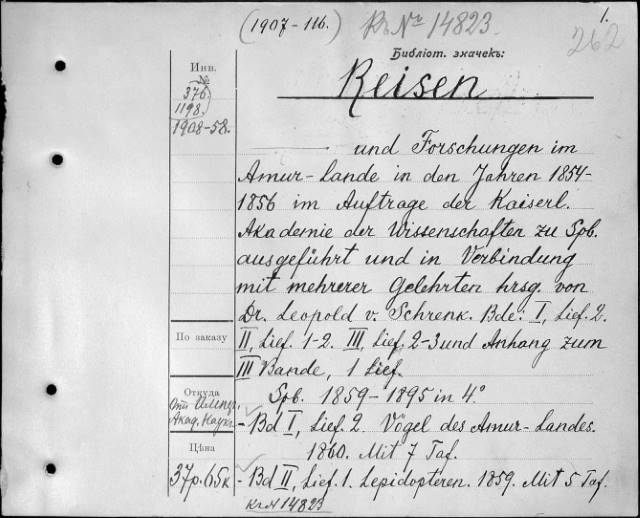 (1907-116.) Къ № 14823. 1.
262
Библіот. значекъ:
Reisen
Инв.
№
376
1198
1908-58.
und Forschungen im
Amur-Lande in den Jahren 1854-
1856 im Auftrage der Kaiserl.
Akademie der Wissenschaften zu Spb.
ausgeführt und in Verbindung
mit mehrerer Gelehrten hrsg. von
Dr. Leopold v. Schrenk. Bde: I, Lief. 2.
II, Lief. 1-2. III, Lief. 2-3 und Anhang zum
III Bande, 1 Lief.
Spb. 1859-1895 in 4°
- Bd I, Lief. 2. Vögel des Amur-Landes.
1860. Mit 7 Taf.
- Bd II, Lief. 1. Lepidopteren. 1859. Mit 5 Taf.
Къ № 14823
По заказу
Откуда
Отъ Импер.
Акад. Наукъ
Цѣна
37р. 65к